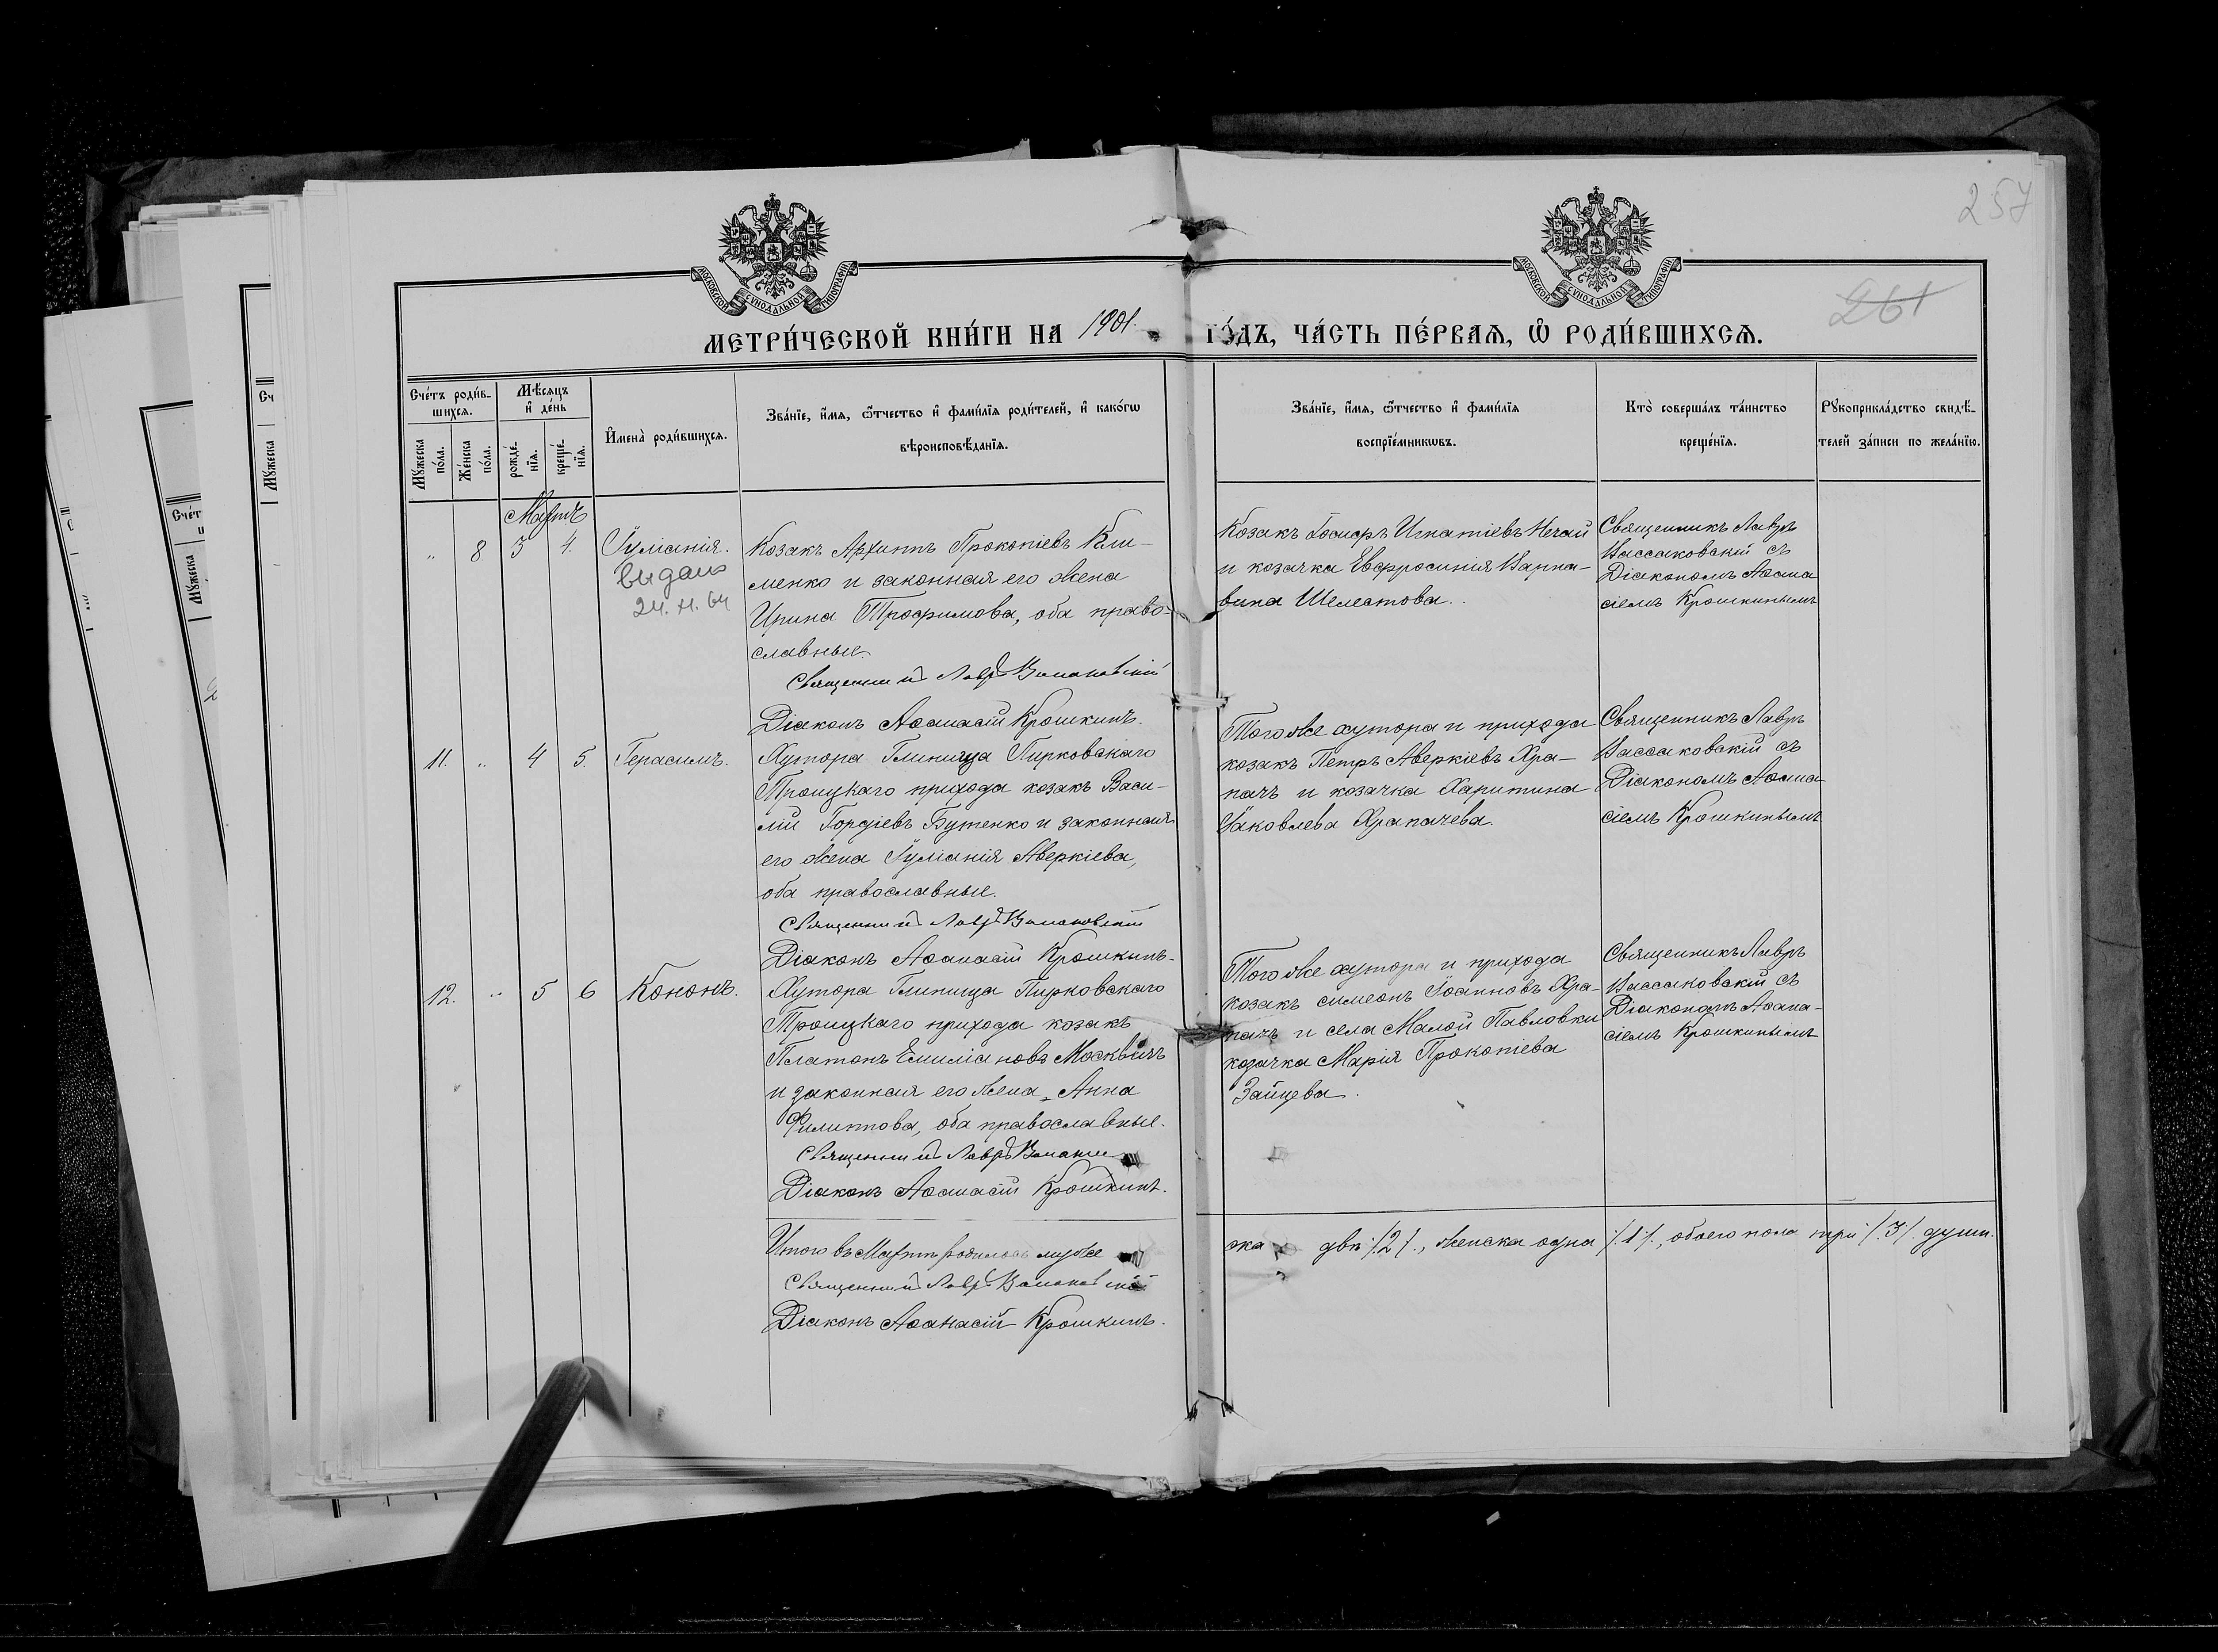 257
261
МОСКОВСКОЙ СѴНОДАЛЬНОЙ ТИПОГРАФІИ
МОСКОВСКОЙ СѴНОДАЛЬНОЙ ТИПОГРАФІИ
МЕТРИ́ЧЕСКОЙ КНИ́ГИ НА 1901. ГО́ДЪ, ЧА́СТЬ ПЕ́РВАѦ, Ѡ҆ РОДИ́ВШИХСѦ.
Сче́тъ роди́в-
шихсѧ.
Мѣ́сѧцъ
и҆ де́нь
Мꙋ́жеска
по́ла.
Же́нска
по́ла.
рожде́-
нїѧ.
креще́-
нїѧ.
И҆мена̀ роди́вшихсѧ.
Зва́нїе, и҆́мѧ, ѻ҆́тчество и҆ фами́лїѧ роди́телей, и҆ како́гѡ
вѣроисповѣ́данїѧ.
Зва́нїе, и҆́мѧ, ѻ҆́тчество и҆ фами́лїѧ
воспрїе́мникѡвъ.
Кто̀ соверша́лъ та́инство
креще́нїѧ.
Рꙋкоприкла́дство свидѣ́-
телей за́писи по жела́нїю.
Мартъ
" 8 3 4. Іуліанія.
видано
24.XI.64
Козакъ Архиппъ Прокопіевъ Кли-
менко и законная его жена
Ирина Трофимова, оба право-
славные.
Священникъ Лавръ
Діаконъ Аѳанасій Крошкинъ.
Козакъ Іосифъ Игнатіевъ Нечай
и козачка Евфросинія Варна-
вина Шелестова.
Священникъ Лавръ
Вассаковскій съ
Діакономъ Аѳана
сіемъ Крошкинымъ
11. " 4 5. Герасимъ.
Хутора Глинища Пирковскаго
Троицкаго прихода козакъ Васи-
лій Гордіевъ Бутенко и законная
его жена Іуліанія Аверкіева,
оба православные.
Священникъ Лавръ
Діаконъ Аѳанасій Крошкинъ.
Того же хутора и прихода
козакъ Петръ Аверкіевъ Хра-
пачъ и козачка Харитина
Іаковлева Храпачева.
Священникъ Лавръ
Вассаковскій съ
Діакономъ Аѳана-
сіемъ Крошкинымъ
12. " 5 6 Кононъ.
Хутора Глинища Пирковскаго
Троицкаго прихода козакъ
Платонъ Емиліановъ Москвичъ
и законная его жена Анна
Филиппова, оба православные.
Священникъ Лавръ
Діаконъ Аѳанасій Крошкинъ.
Того же хутора и прихода
козакъ Симеонъ Іоанновъ Хра-
пачъ и села Малой Павловки
козачка Марія Прокопіева
Зайцева.
Священникъ Лавръ
Вассаковскій съ
Діакономъ Аѳана-
сіемъ Крошкинымъ
Итого въ Мартѣ родилось муже
ска двѣ /2/., женска одна /.1/., обоего пола три /.3/. души.
Священникъ Лавръ
Діаконъ Аѳанасій Крошкинъ.